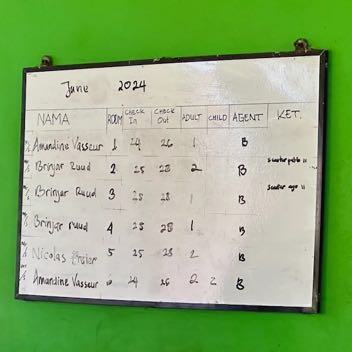 June 2024
NAMA ROOM CHECK In CHECK Out ADULT CHILD AGENT KET.
Amandine Vasseur 1 24 26 1 B
Brinjar Ruud 2 25 28 2 B
Brinjar Ruud 3 25 28 1 B
Brinjar ruud 4 25 28 1 B
Nicolas 5 25 28 2 B
Amandine Vasseur 24 26 2 2 B